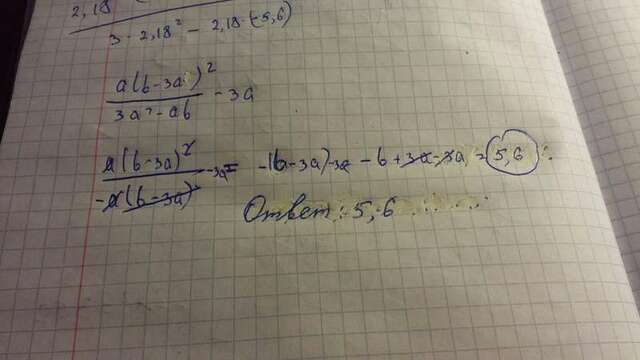 2,18
3 · 2,18² − 2,18 · (−5,6)
a(b−3a)²
3a²−ab
−3a
a(b−3a)²
−a(b−3a)
−3a = −(b−3a)−3a −b+3a−3a = 5,6
Ответ: 5,6